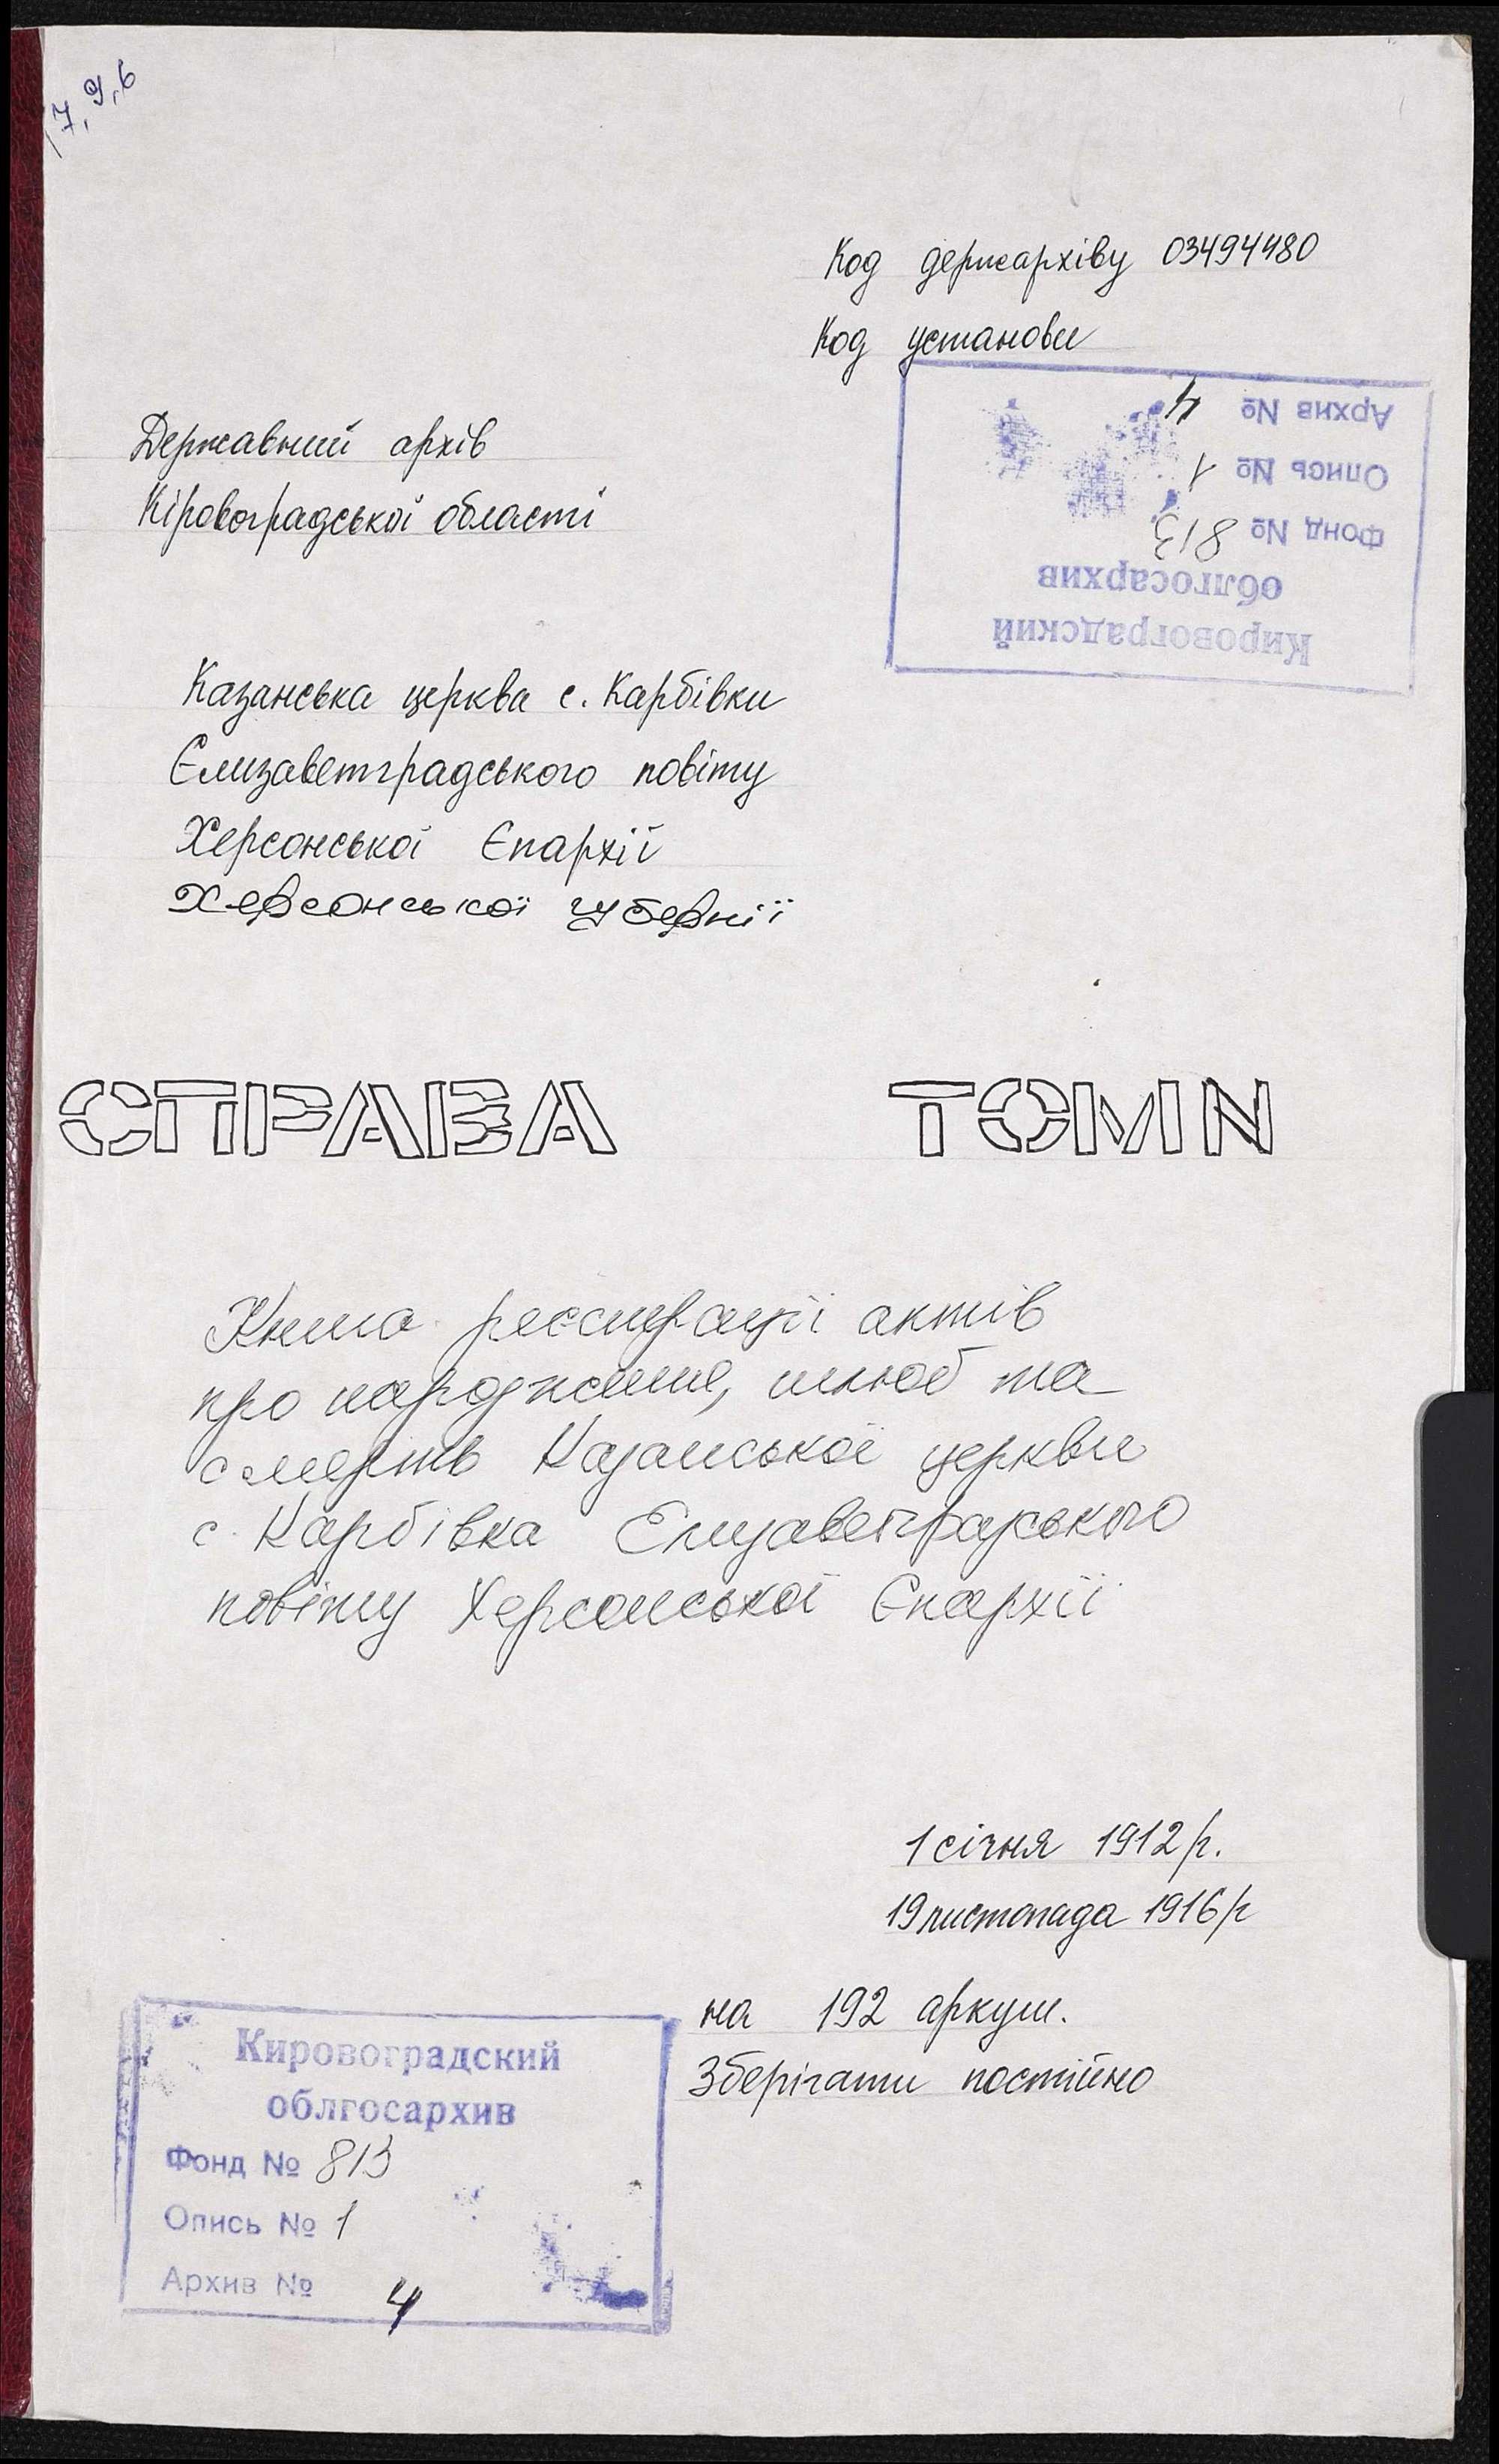 17, 9, 6
Код держархіву 03494480
Код установи
Архив № 4
Опись № 1
Фонд № 813
облгосархив
Кировоградский
Державний архів
Кіровоградської області
Казанська церква с. Карбівки
Єлизаветградського повіту
Херсонської Єпархії
Херсонської губернії
СПРАВА ТОМ N
Книга реєстрації актів
про народження, шлюб та
смерть Казанської церкви
с. Карбівка Елизаветградського
повіту Херсонської Єпархії
1 січня 1912 р.
19 листопада 1916 р
на 192 аркуш.
Зберігати постійно
Кировоградский
облгосархив
Фонд № 813
Опись № 1
Архив № 4